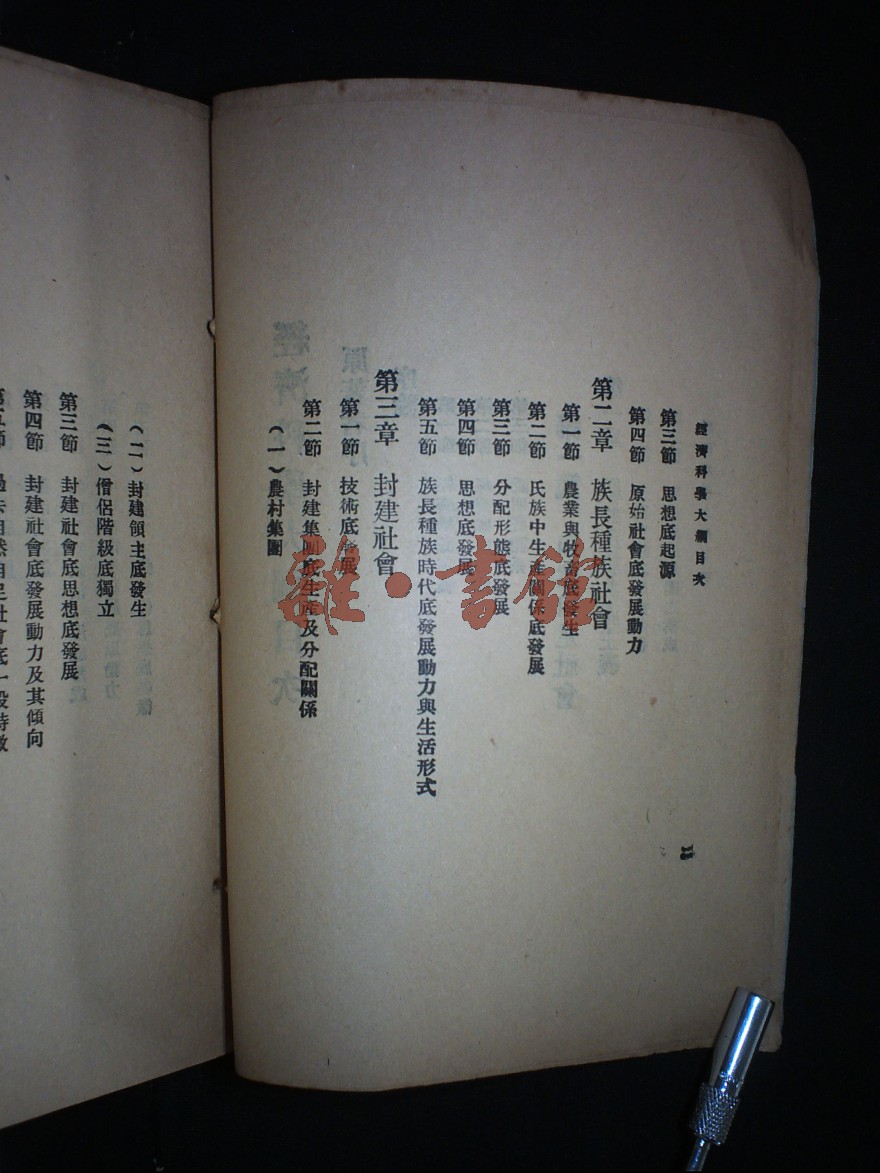 經濟科學大綱目次
第三節 思想底起源
第四節 原始社會底發展動力
第二章 族長種族社會
第一節 農業與牧畜底發生
第二節 氏族中生產關係底發展
第三節 分配形態底發展
第四節 思想底發展
第五節 族長種族時代底發展動力與生活形式
第三章 封建社會
第一節 技術底發展
第二節 封建集團底生產及分配關係
(一)農村集團
(二)封建領主底發生
(三)僧侶階級底獨立
第三節 封建社會底思想底發展
第四節 封建社會底發展動力及其傾向
第五節 過去自然自足社會底一般特徵
雜·書館